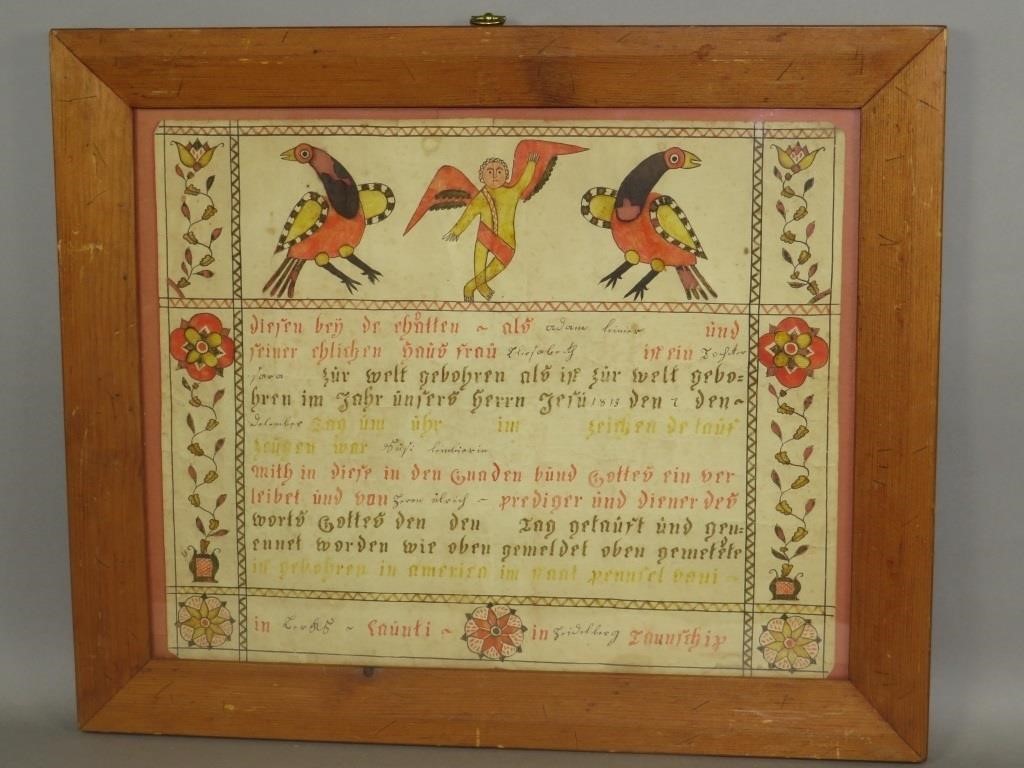 diesen beÿ de ehůtten ~ als adam leiner ünd
seiner ehlichen Haüs fraü Eliesabeth ist ein Tochter
sara zür welt gebohren als ist zür welt gebo=
hren im Jahr ünsers Herrn Jesü 1813 den 2 den~
detember Tag üm ühr im zeichen de taüf
zeügen war Süsi
mith in diese in den Gnaden bünd Gottes ein ver
leibet ünd von Herrn ülrich ~ prediger ünd diener des
worts Gottes den den Tag getaüft ünd gen=
ennet worden wie oben gemeldet oben gemetěte
ist gebohren in america im staat pennsel vani ~
in Berks ~ Caünti ~ in Heidelberg Taunschip